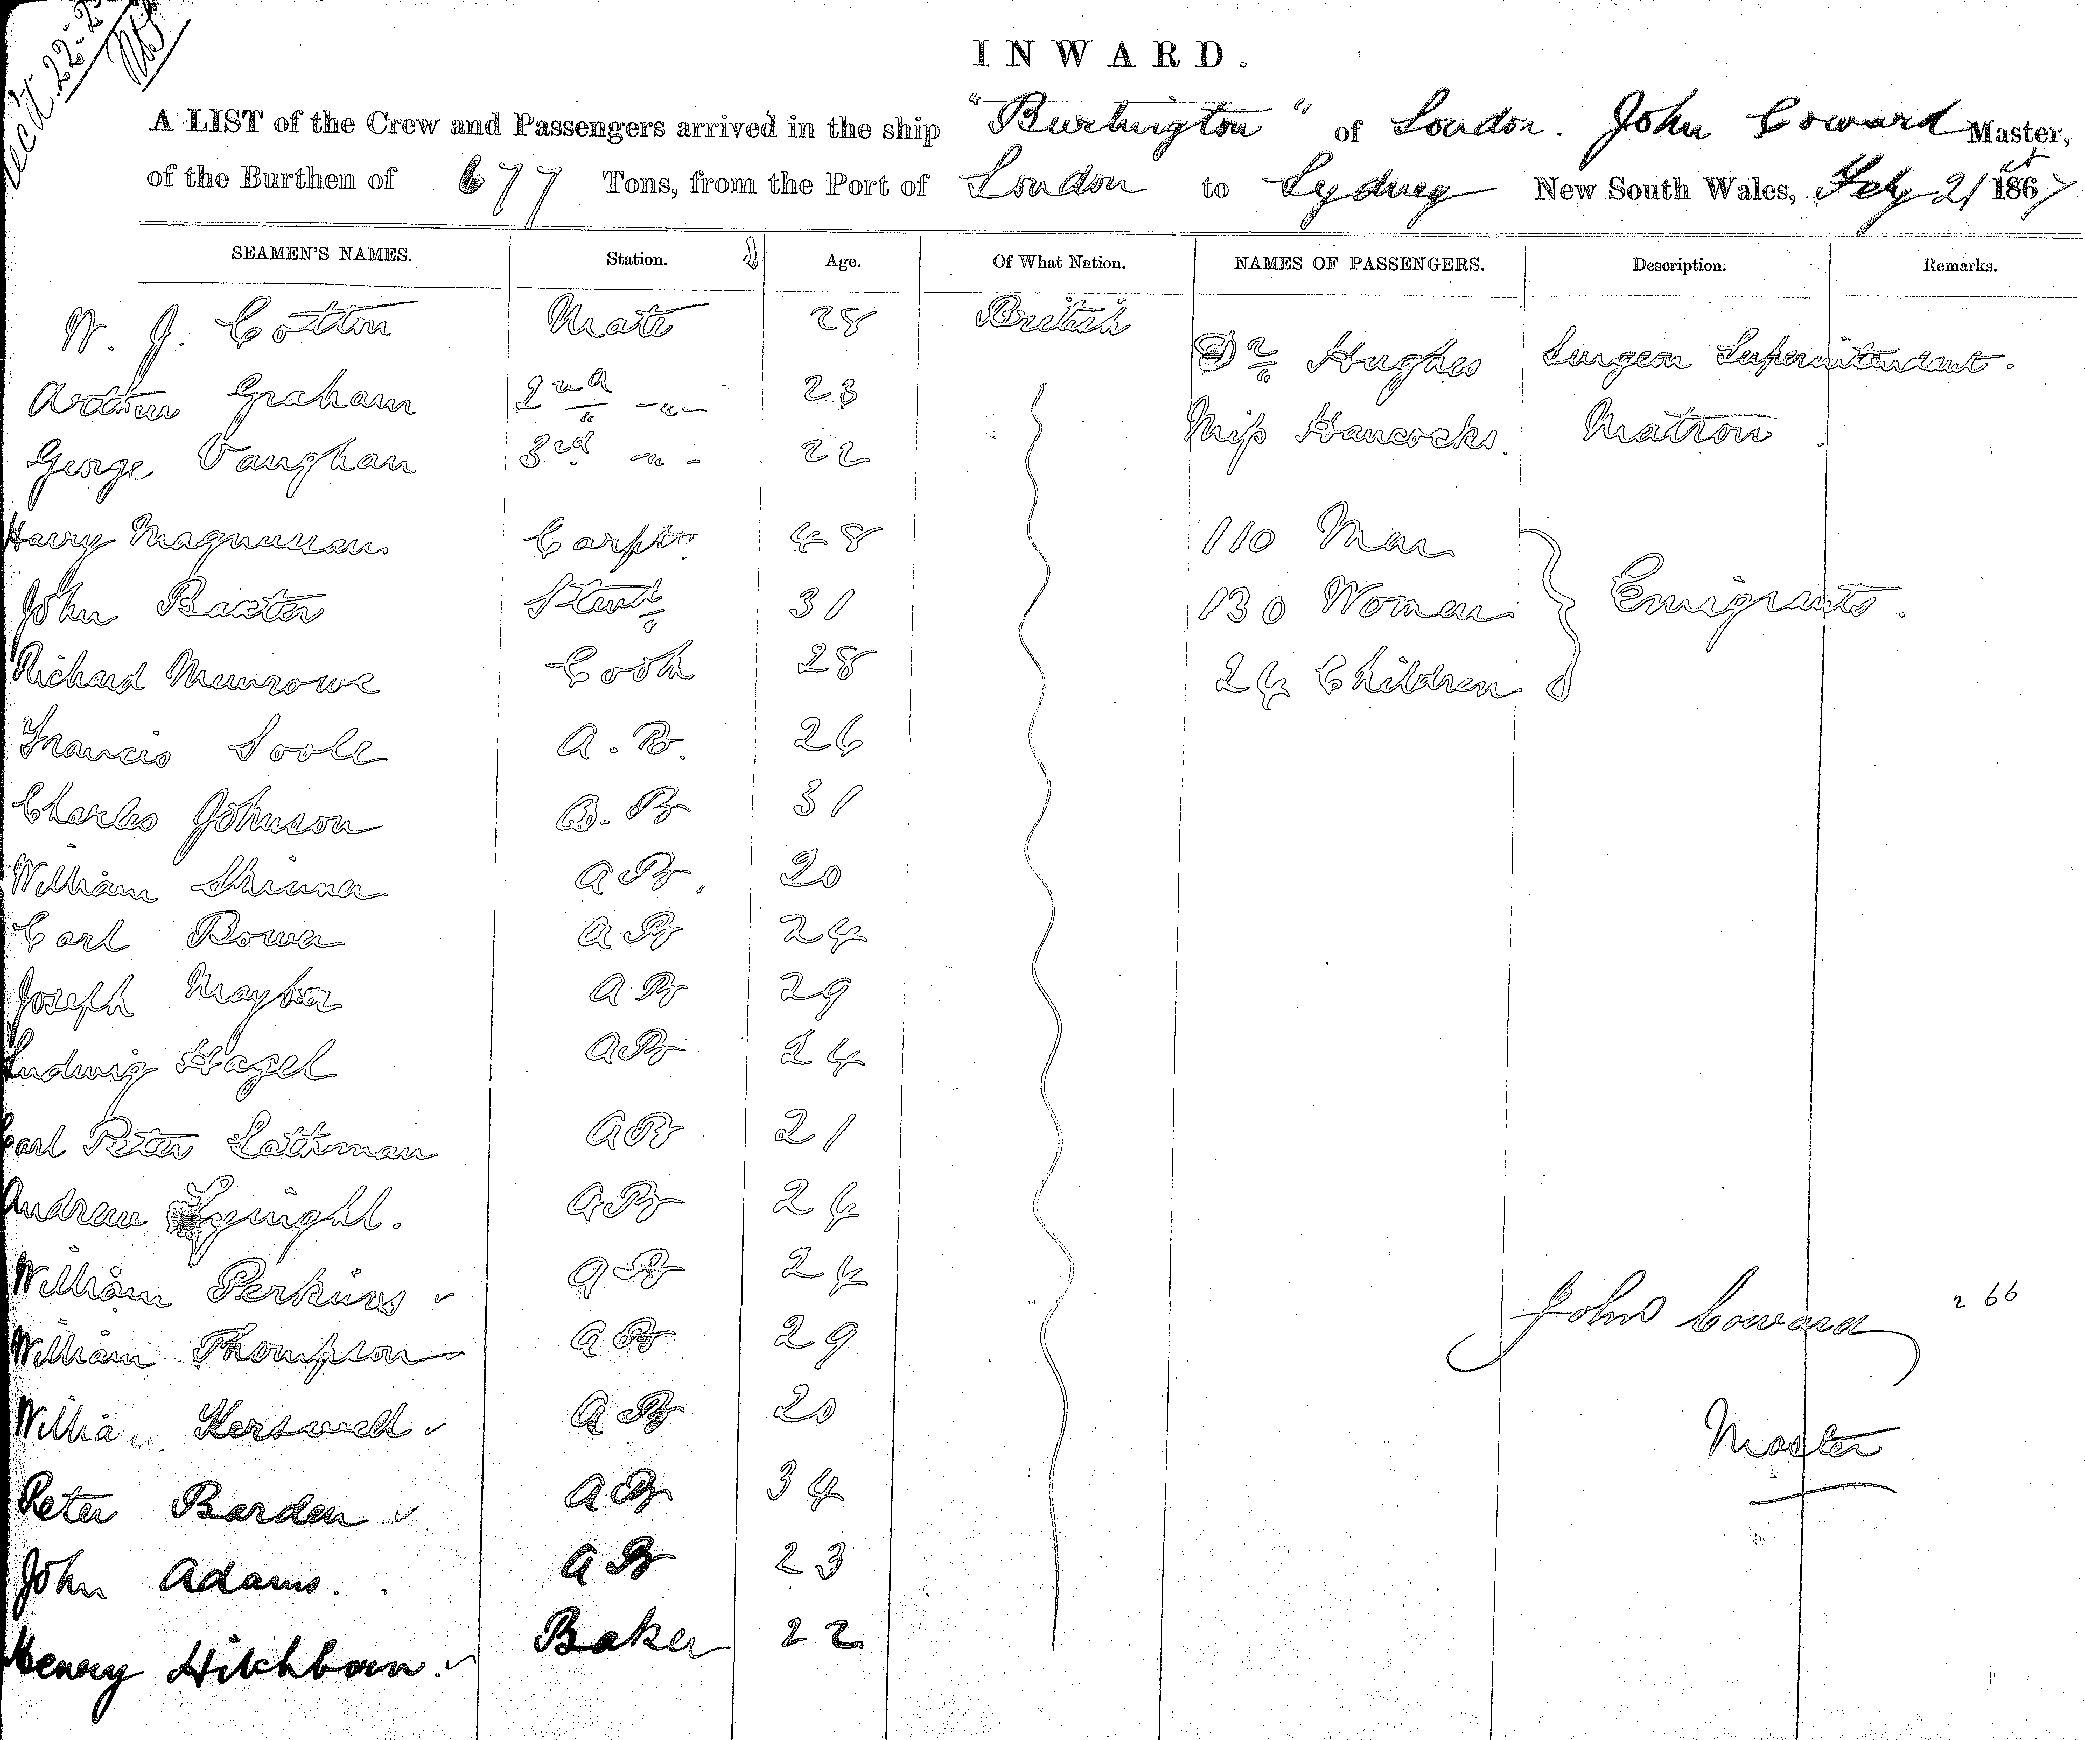 Recd. 22.2
INWARD.
A LIST of the Crew and Passengers arrived in the ship "Burlington" of London. John Coward Master,
of the Burthen of 677 Tons, from the Port of London to Sydney New South Wales, Feby 21st 1867
SEAMEN'S NAMES. Station. Age. Of What Nation. NAMES OF PASSENGERS. Description. Remarks.
W. J. Cotton Mate 28 British
Dr Hughes Surgeon Superintendant.
Arthur Graham 2nd -"- 23
Miss Hancocks. Matron
George Vaughan 3rd -"- 22
Harry Magnussan Carptr 48 110 Men
John Baxter Stewd 31 130 Women Emigrants.
Richard Munrowe Cook 28 24 Children
Francis Soole A.B. 26
Charles Johnson A.B 31
William AB. 20
Carl Bower AB 24
Joseph AB 29
Ludwig Hagel AB 24
Carl Peter Lathman AB 21
Andrew AB 24
William Perkins AB 24
John Coward 266
William Thompson AB 29
William Kerswell AB 20
Master
Peter Barden AB 34
John Adams. AB 23
Henry Hitchborn. Baker 22